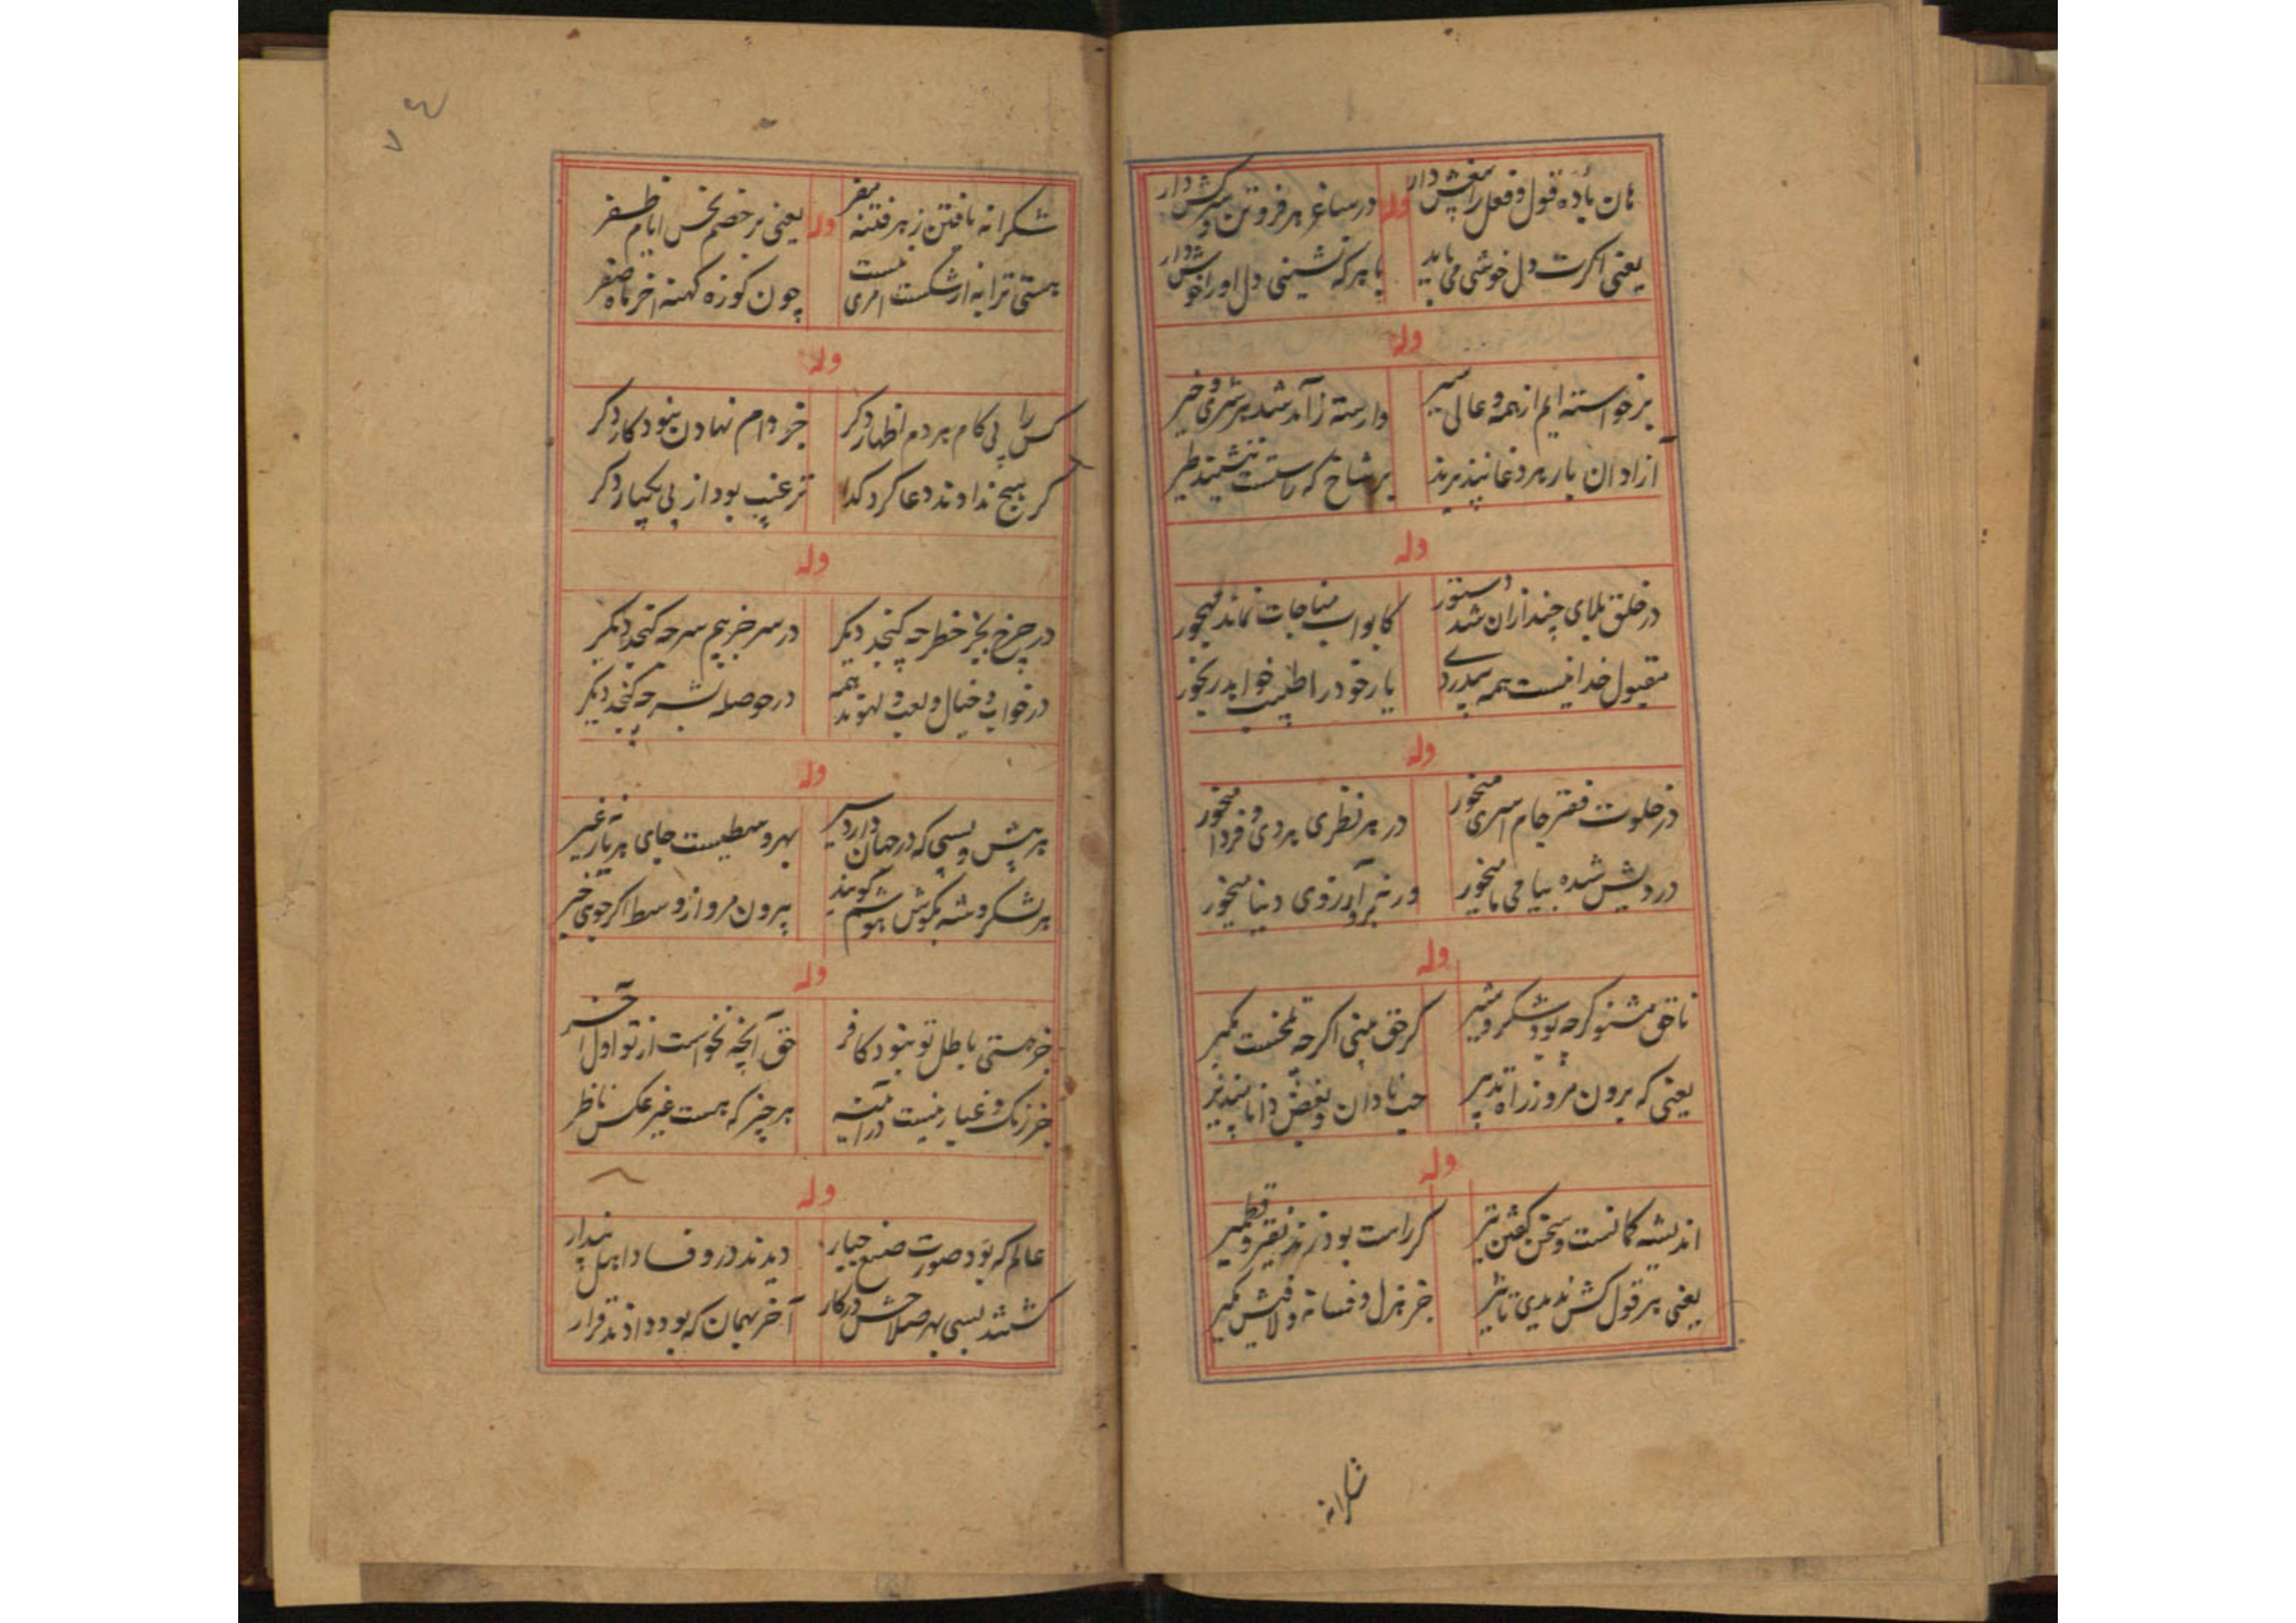 هان باده قول و فعل را بیغش دار
وله
در ساغر هر فروتن و سرکش دار
یعنی اکرت دل خوشی می باید
با هر که نشینی دل او را خوش دار
وله
برخواسته ایم از همه و عالی سیر
وارسته ز آمد شد هر شر و خیر
آزادان بار مرد غا نپذیرند
بر شاخ که راستست ننشیند طیر
وله
در خلق بلای چند ازان شد دستور
کابواب مناجات نماند مهجور
مقبول خدا نیست همه بیدردی
یار خود را طبیب خواهد رنجور
وله
در خلوت فقر جام اسری میخور
در هر نظری می دی و فردا میخور
درویش شده بیا می ما میخور
ورنه برو آرزوی دنیا میخور
وله
ناحق مشنو کرچه بود شکر و شیر
کر حق بینی اکرچه تلخست بکیر
یعنی که برون مرو ز راه تدبیر
حب نادان و بغض دانا بپذیر
وله
اندیشه کمانست و سخن کفتن تیر
کر راست بود زند نقیر و قطمیر
یعنی هر قول کش ندیدی تاثیر
جز هزل و فسانه و لافش مکیر
شکرانه
شکرانه یافتن ز هر فتنه مفر
وله
یعنی بر خصم نحس ایام ظفر
هستی ترا به از شکست امری نیست
چون کوزه کهنه آخر ماه صفر
وله
کس را پی کام هر دم اظهار دکر
جز دام نهادن نبود کار دکر
کر هیچ ندادند دعا کرد کدا
ترغیب بود از پی یکبار دکر
وله
در چرخ بجز خطر چه کنجد دیکر
در سر جز بیم سر چه کنجد دیکر
در خواب و خیال و لعب و لهوند همه
در حوصله بشر چه کنجد دیکر
وله
هر پیش و پسی که در جهان دارد سیر
بهر وسطیست جای هر یار نه غیر
هر لشکر و شه بکوش هوشم کویند
بیرون مرو از وسط اکر جویی خیر
وله
جز هستی باطل تو نبود کافر
حق آنچه نخواست از تو اول آخر
جز زنک و غبار نیست در آئینه
هر چیز که هست غیر عکس ناظر
وله
عالم که بود صورت صنع جبار
دیدند درو فساد اهل پندار
کشتند بسی بهر صلاحش در کار
آخر بهمان که بود دادند قرار